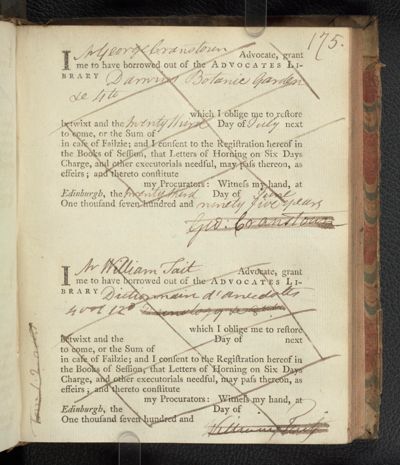 175.
I Mr George Cranstoun Advocate, grant
me to have borrowed out of the ADVOCATES LI-
BRARY Darwins Botanic Garden
4to
which I oblige me to restore
betwixt and the twenty third Day of July next
to come, or the Sum of
in case of Failzie; and I consent to the Registration hereof in
the Books of Session, that Letters of Horning on Six Days
Charge, and other executorials needful, may pass thereon, as
effeirs; and thereto constitute
my Procurators: Witness my hand, at
Edinburgh, the twenty third Day of June
One thousand seven hundred and ninety five years
Geo: Cranstoun
I Mr William Tait Advocate, grant
me to have borrowed out of the ADVOCATES LI-
BRARY Dictionnaire d'anecdotes
4 vol 12o
which I oblige me to restore
betwixt and the Day of next
to come, or the Sum of
in case of Failzie; and I consent to the Registration hereof in
the Books of Session, that Letters of Horning on Six Days
Charge, and other executorials needful, may pass thereon, as
effeirs; and thereto constitute
my Procurators: Witness my hand, at
Edinburgh, the Day of
One thousand seven hundred and
William Tait